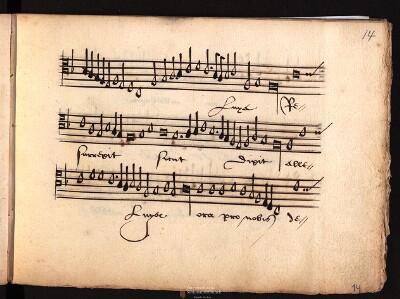 14
luya Re-
surrexit sicut dixit alle-
luya ora pro nobis de-
14